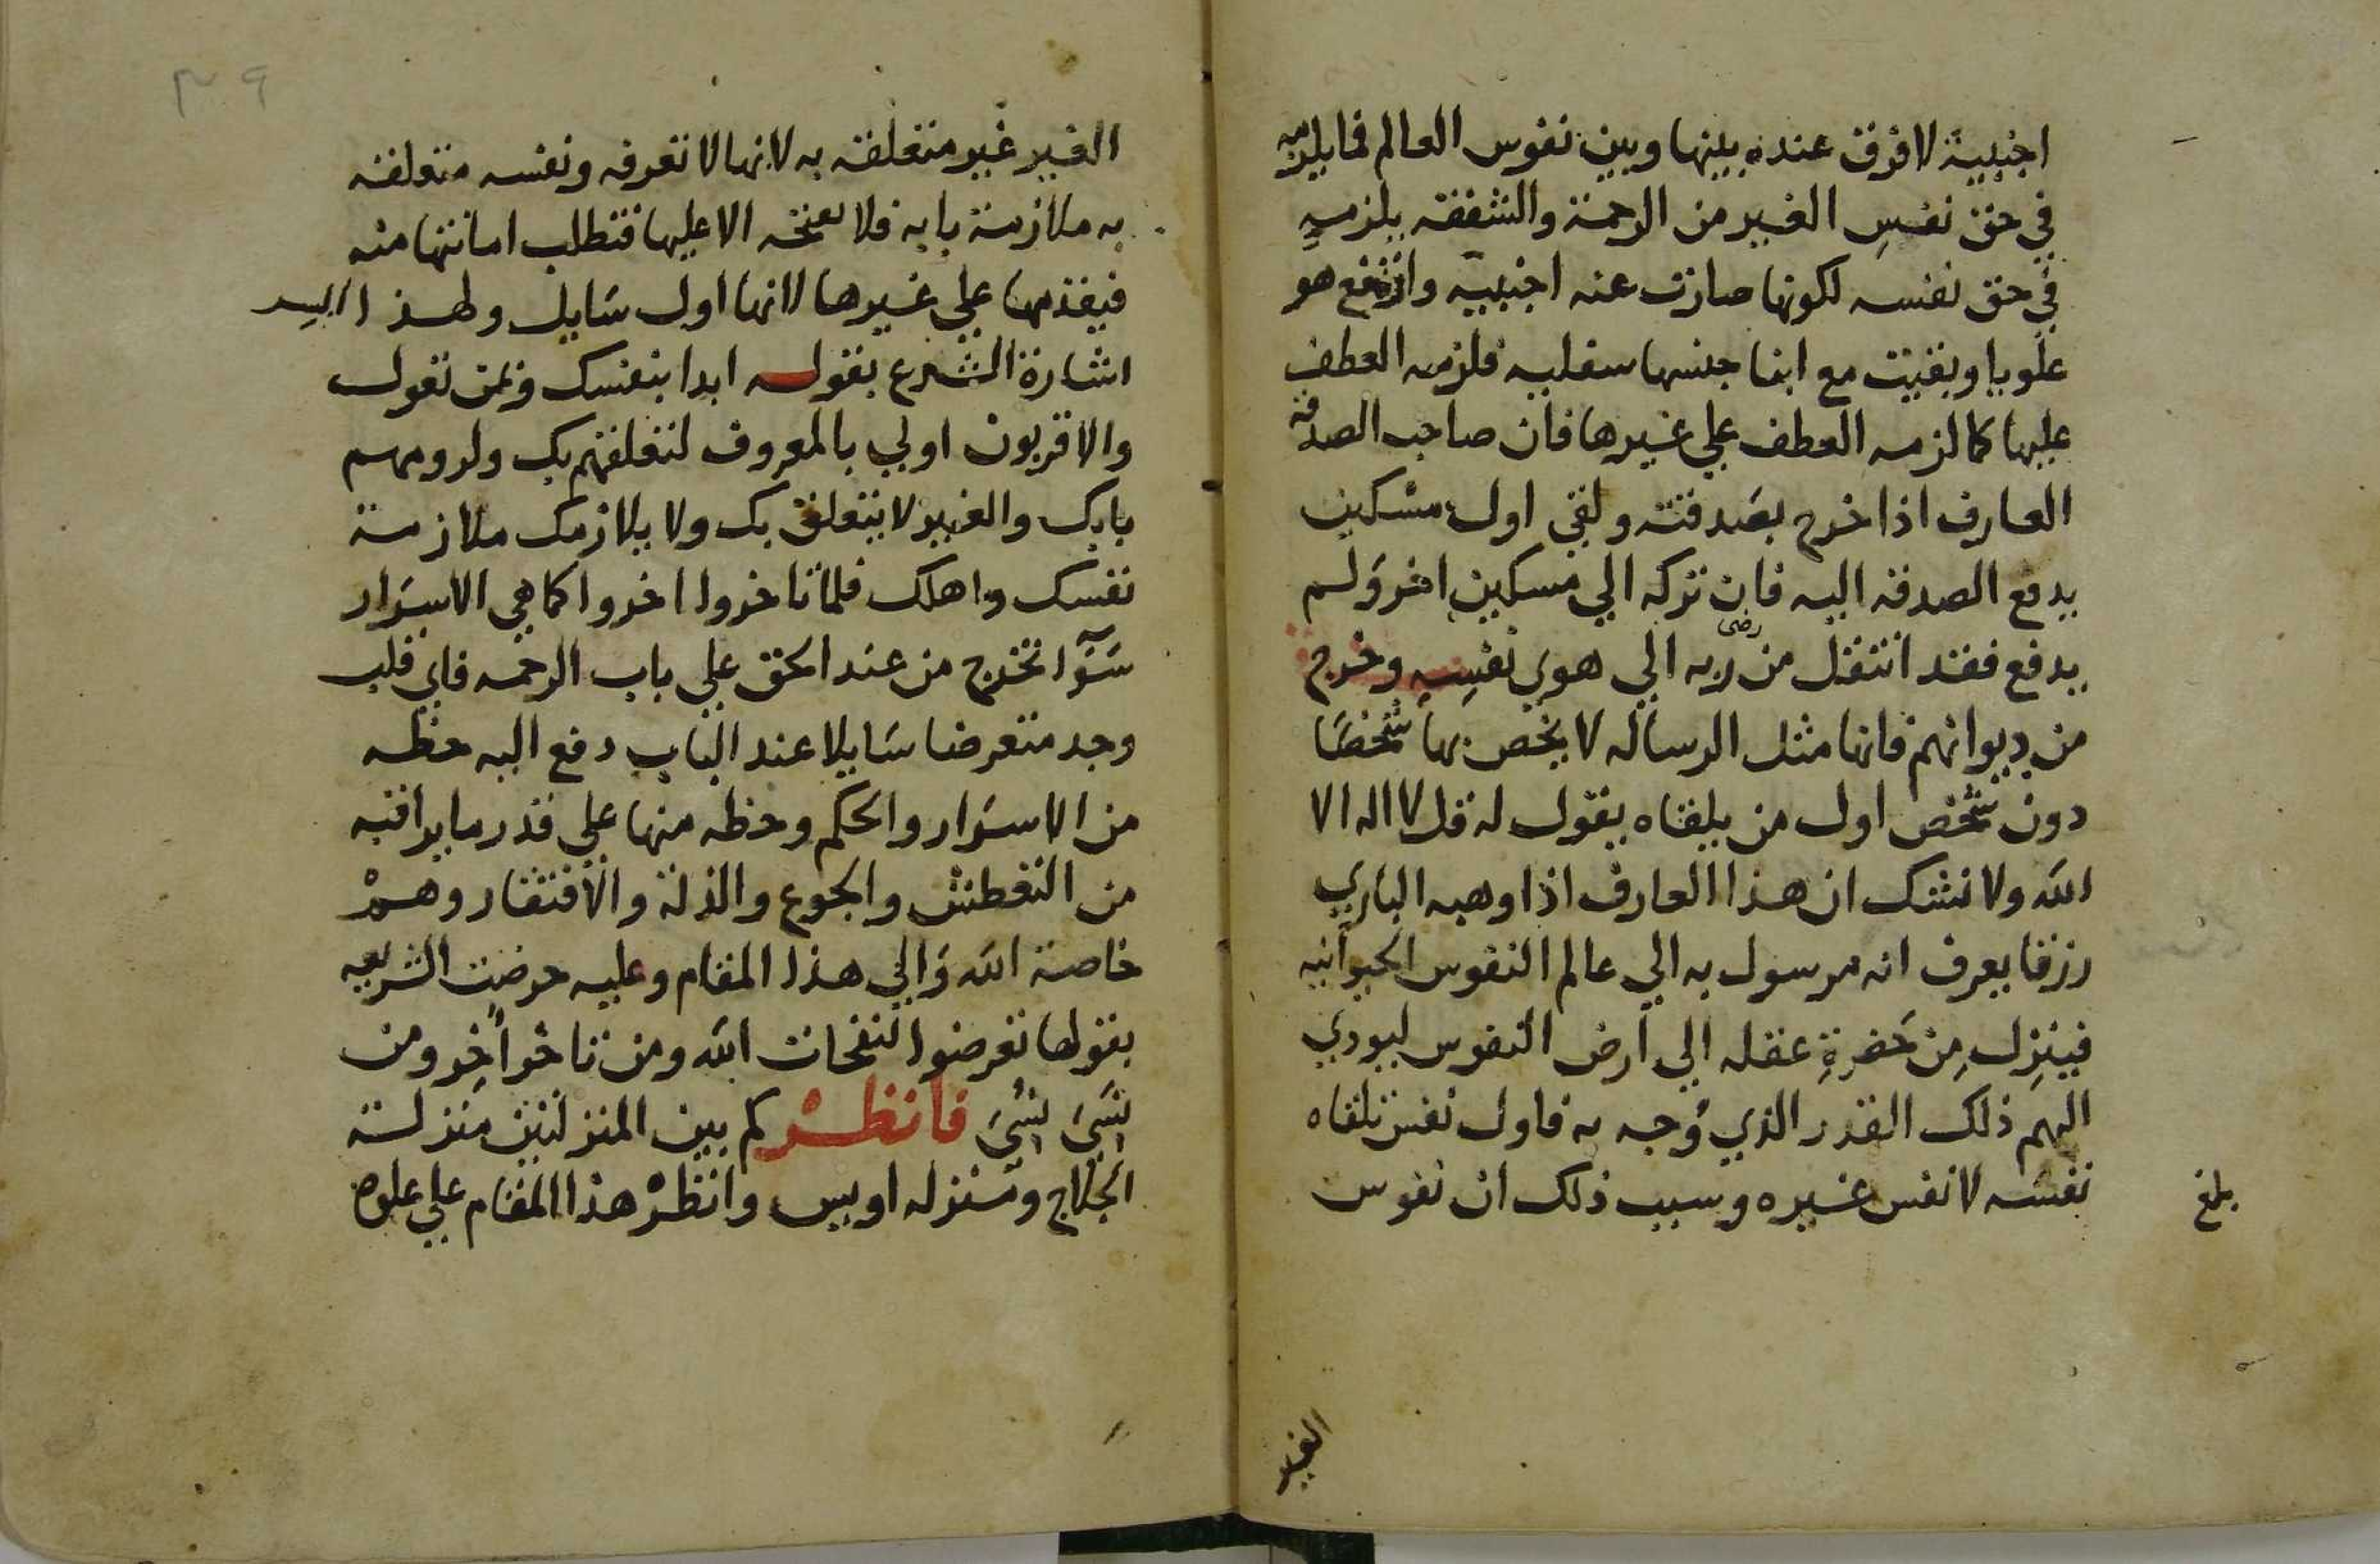 اجنبية لا فرق عنده بينها وبين نفوس العالم فما يلزمه
في حق نفس الغير من الرحمة والشفقة يلزمه
في حق نفسه لكونها صارت عنه اجنبية وارتفع هو
علويا وبقيت مع ابنا جنسها سفلية فلزمه العطف
عليها كما لزمه العطف علي غيرها فان صاحب الصدقة
العارف اذا خرج بصدقته ولقي اول مسكين
يدفع الصدقة اليه فان تركه الي مسكين اخر ولم
يدفع فقد انتقل من رضى ربه الي هوي نفسه وخرج
من ديوانهم فانها مثل الرسالة لا يخص بها شخصا
دون شخص اول من يلقاه يقول له قل لا اله الا
الله ولا نشك ان هذا العارف اذا وهبه الباري
رزقا يعرف انه مرسول به الي عالم النفوس الحيوانية
فينزل من حضرة عقله الي ارض النفوس ليودي
اليهم ذلك القدر الذي وجه به فاول نفس تلقاه
نفسه لا نفس غيره وسبب ذلك ان نفوس
بلغ
الغير
٣٩
الغير غير متعلقة به لانها لا تعرفه ونفسه متعلقة
به ملازمة بابه فلا يفتحه الا عليها فتطلب امانتها منه
فيقدمها علي غيرها لانها اول سايل ولهذا السر
اشارة الشرع بقوله ابدا بنفسك وبمن تعول
والاقربون اولي بالمعروف لتعلقهم بك ولزومهم
بابك والغير لا يتعلق بك ولا يلازمك ملازمة
نفسك واهلك فلما تاخروا اخروا كما هي الاسرار
سوآ تخرج من عند الحق علي باب الرحمه فاي قلب
وجد متعرضا سايلا عند الباب دفع اليه حظه
من الاسرار والحكم وحظه منها علي قدر ما يرا فيه
من التعطش والجوع والذلة والافتقار وهم
خاصة الله والي هذا المقام وعليه حرضت الشريعه
بقولها تعرضوا لنفحات الله ومن تاخر اخر ومن
نسي نسي فانظر كم بين المنزلتين منزلة
الحلاج ومنزله اويس وانظر هذا المقام علي علوه